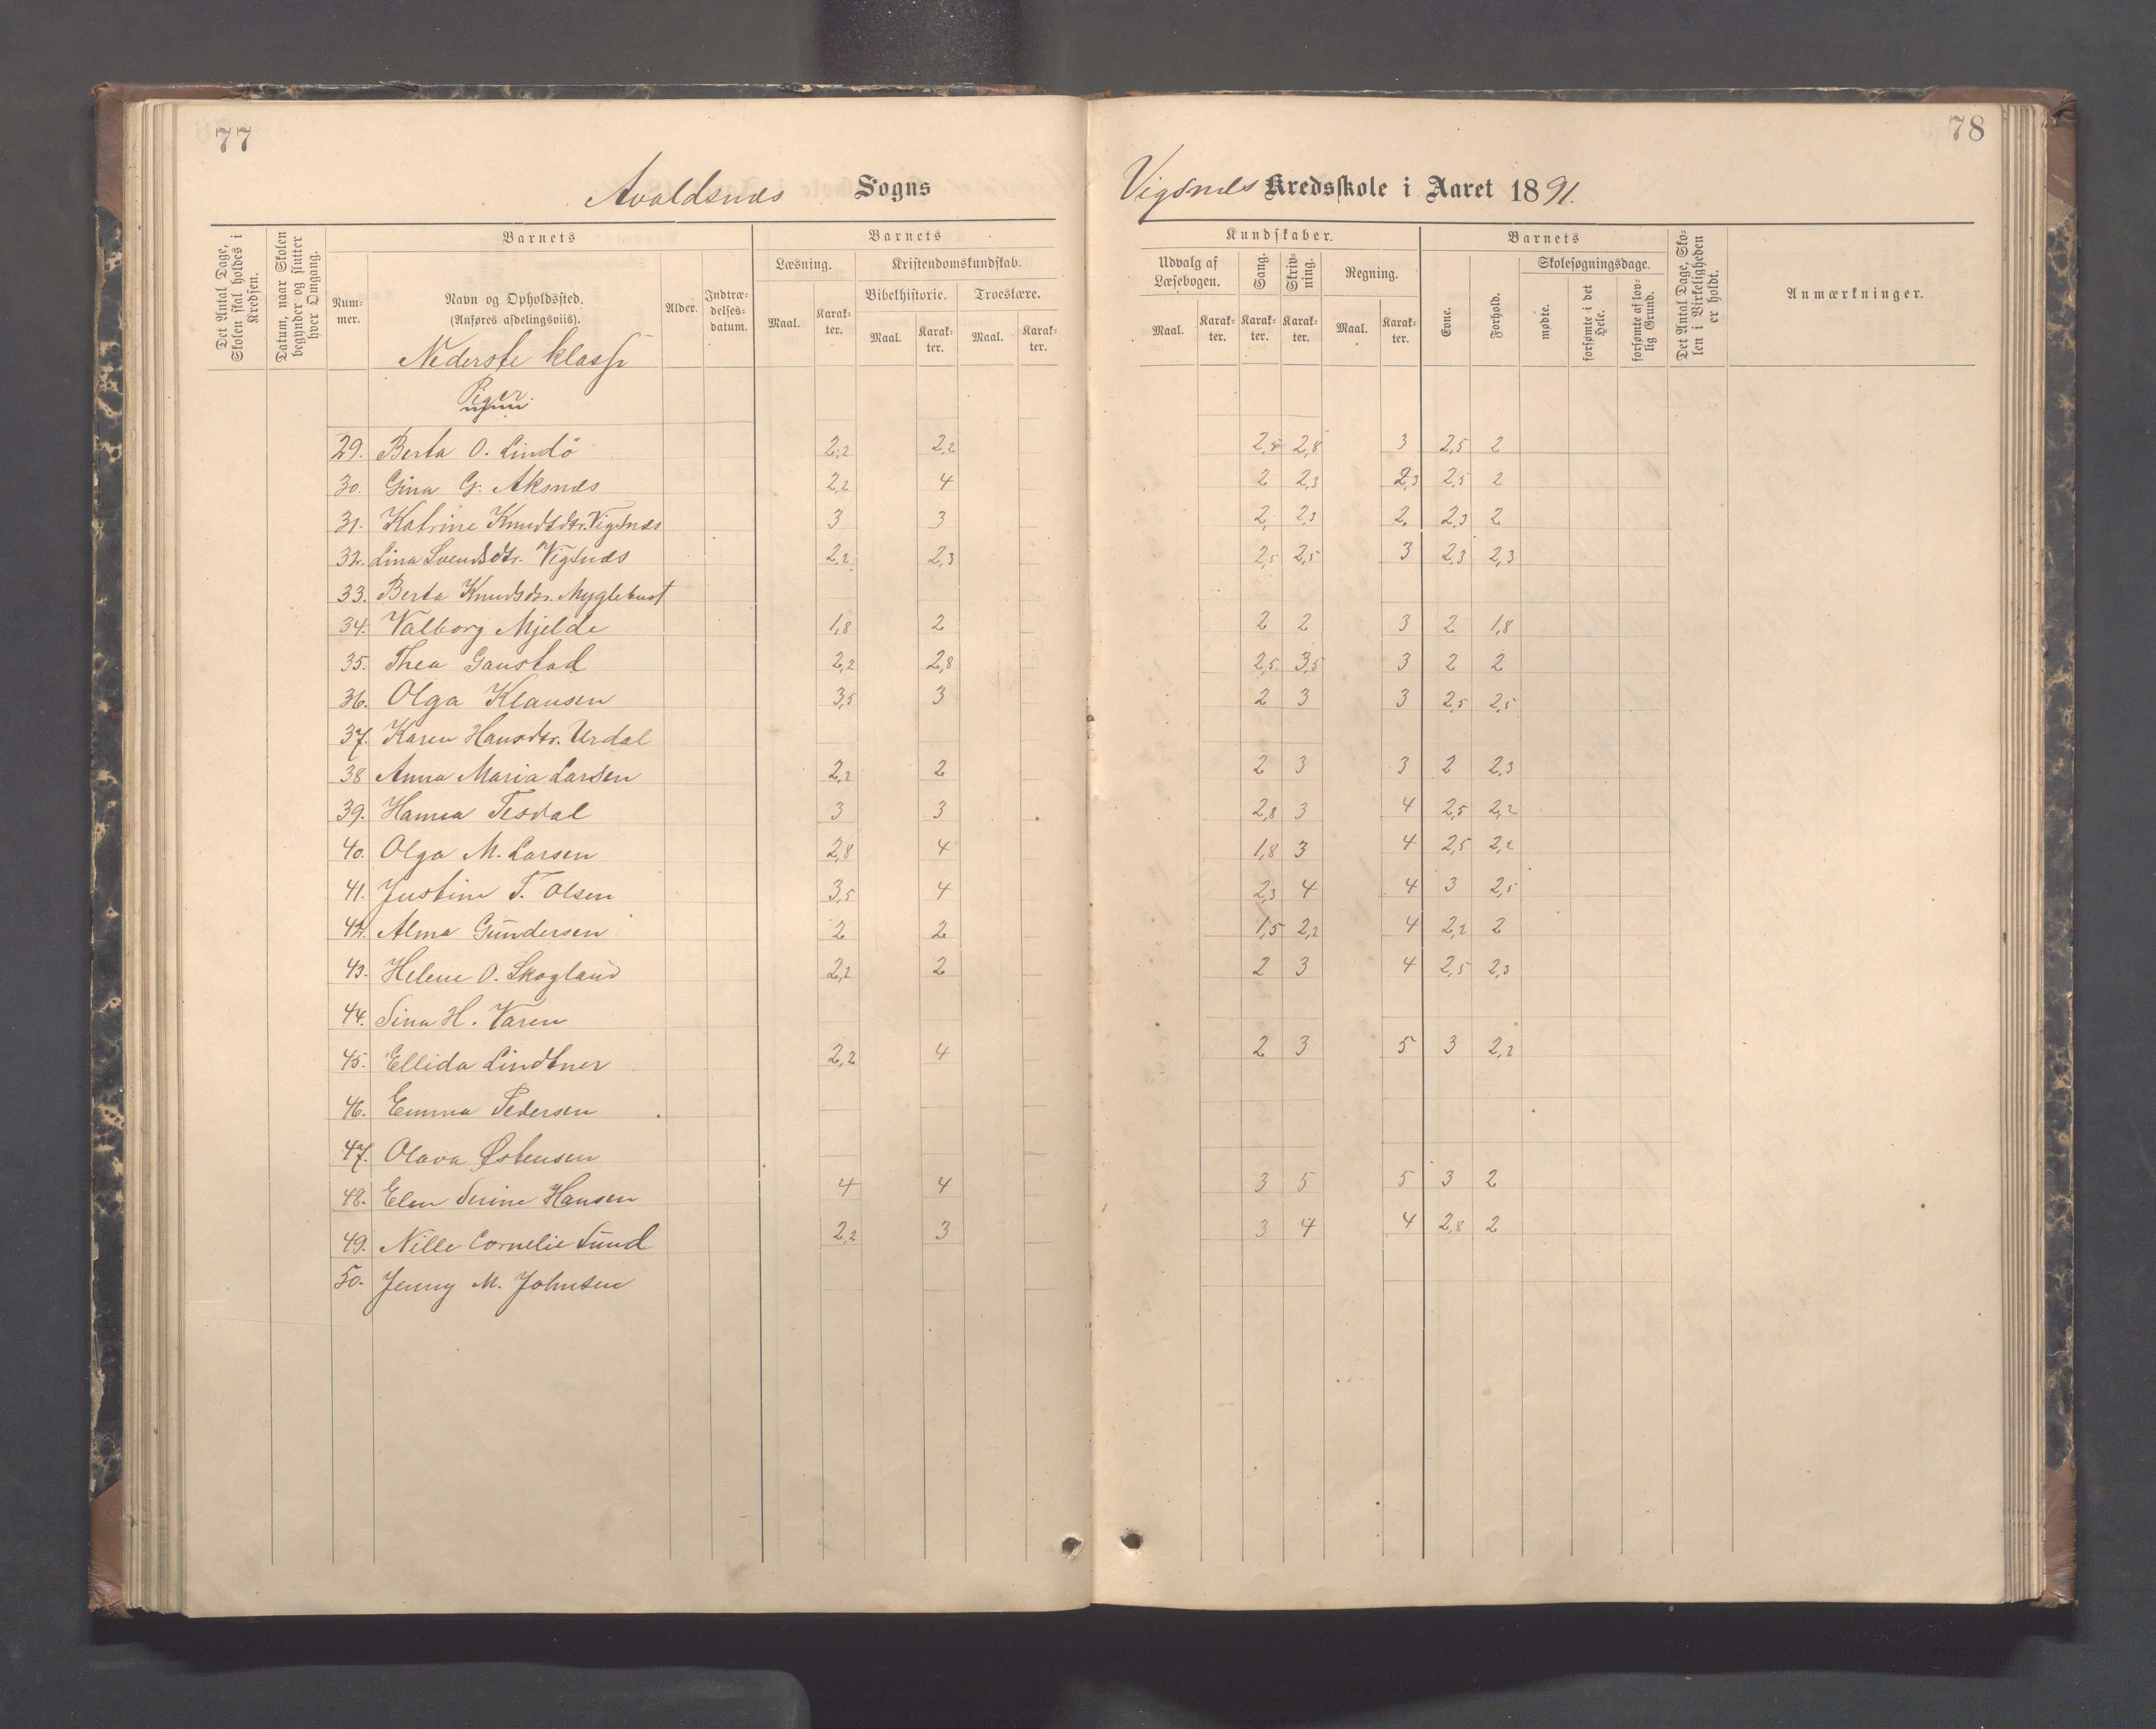 77
78
Avaldsnæs Sogns
Vigsnæs Kredsskole i Aaret 1891.
Det Antal Dage, Skolen skal holdes i Kredsen.
Datum, naar Skolen begynder og slutter hver Omgang.
Barnets
Num-mer.
Navn og Opholdssted.
(Anføres afdelingsviis).
Alder.
Indtræ-delses-datum.
Barnets
Læsning.
Kristendomskundskab.
Bibelhistorie.
Troeslære.
Maal.
Karak-ter.
Maal.
Karak-ter.
Maal.
Karak-ter.
Kundskaber.
Udvalg af Læsebogen.
Sang.
Skriv-ning.
Regning.
Maal.
Karak-ter.
Karak-ter.
Karak-ter.
Maal.
Karak-ter.
Barnets
Evne.
Forhold.
Skolesøgningsdage.
mødte.
forsømte i det Hele.
forsømte af lov-lig Grund.
Det Antal Dage, Sko-len i Virkeligheden er holdt.
Anmærkninger.
Nederste klasse
Piger
29. Berta O. Lindö 2,2 2,2 2,5 2,8 3 2,5 2
30. Gina G. Aksnæs 2,2 4 2 2,3 2,3 2,5 2
31. Katrine Knudsdtr. Vigsnæs 3 3 2, 2,3 2, 2,3 2
32. Lina Svendsdtr. Vigsnæs 2,2 2,3 2,5 2,5 3 2,3 2,3
33. Berta Knudsdtr. Myglebust
34. Valborg Mjelde 1,8 2 2 2 3 2 1,8
35. Thea Gaustad 2,2 2,8 2,5 3,5 3 2 2
36. Olga Klausen 3,5 3 2 3 3 2,5 2,5
37. Karen Hansdtr. Urdal
38 Anna Maria Larsen 2,2 2 2 3 3 2 2,3
39. Hanna Tesdal 3 3 2,8 3 4 2,5 2,2
40. Olga M. Larsen 2,8 4 1,8 3 4 2,5 2,2
41. Justine T. Olsen 3,5 4 2,3 4 4 3 2,5
42. Alma Gundersen 2 2 1,5 2,2 4 2,2 2
43. Helene O. Skogland 2,2 2 2 3 4 2,5 2,3
44. Sina H. Varen
45. Ellida Lindtner 2,2 4 2 3 5 3 2,2
46. Emma Pedersen
47. Olava Østensen
48. Elen Serine Hansen 4 4 3 5 5 3 2
49. Nille Cornelie Sund 2,2 3 3 4 4 2,8 2
50. Jenny M. Johnsen